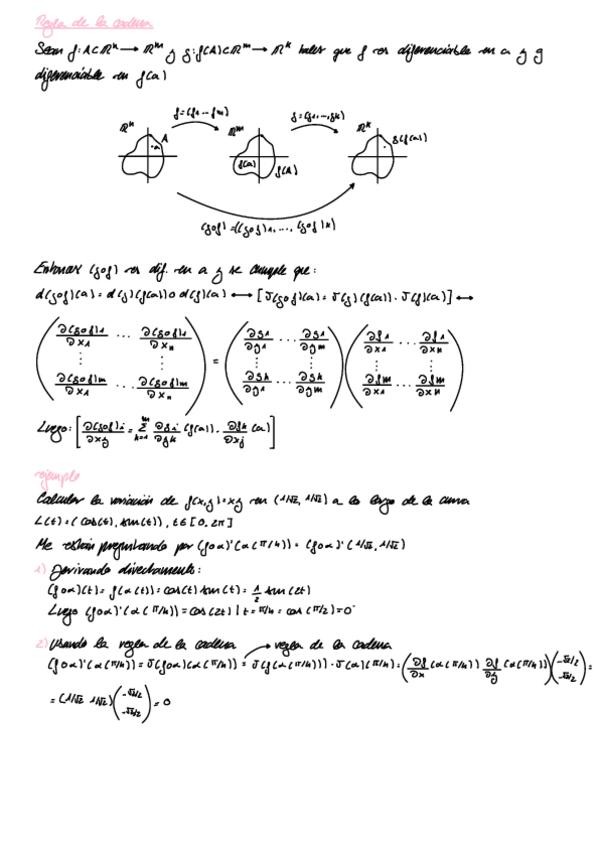 Regla de la cadena
Sean f: A⊂ℝⁿ → ℝᵐ y g: f(A)⊂ℝᵐ → ℝᵏ tales que f es diferenciable en a y g
diferenciable en f(a)
f=(f1...fm) g=(g1,...,gk)
ℝⁿ A ℝᵐ ℝᵏ g(f(a))
·a f(a) f(A)
(gof)=((gof)1,..., (gof)k)
Entonces (gof) es dif. en a y se cumple que:
d(gof)(a) = d(g)(f(a)) o d(f)(a) ⟷ [J(gof)(a) = J(g)(f(a)) · J(f)(a)] ⟷
(∂(gof)1/∂x1 ... ∂(gof)1/∂xn ⋮ ⋮ ∂(gof)m/∂x1 ... ∂(gof)m/∂xn) = (∂g1/∂y1 ... ∂g1/∂ym ⋮ ⋮ ∂gk/∂y1 ... ∂gk/∂ym) (∂f1/∂x1 ... ∂f1/∂xn ⋮ ⋮ ∂fm/∂x1 ... ∂fm/∂xn)
Luego: [∂(gof)i/∂xj = Σ k=1 m ∂gi/∂yk (f(a)) · ∂fk/∂xj (a)]
ejemplo
Calcular la variación de f(x,y)=xy en (1/√2, 1/√2) a lo largo de la curva
L(t)=(cos(t), sen(t)), t∈[0, 2π]
Me están preguntando por (foα)'(α(π/4)) = (foα)'(1/√2, 1/√2)
1) Derivando directamente:
(foα)(t) = f(α(t)) = cos(t) sen(t) = 1/2 sen(2t)
Luego (foα)'(α(π/4)) = cos(2t) | t=π/4 = cos(π/2) = 0
2) Usando la regla de la cadena → regla de la cadena
(foα)'(α(π/4)) = J(foα)(α(π/4)) = J(f(α(π/4))) · J(α)(π/4) = (∂f/∂x (α(π/4)) ∂f/∂y (α(π/4))) (-√2/2 -√2/2) =
= (1/√2 1/√2) (-√2/2 -√2/2) = 0